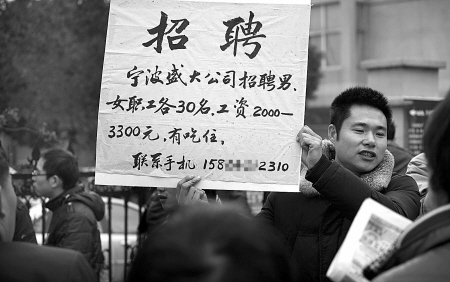 招聘
宁波盛大公司招聘男、
女职工各-30名.工资2000—
3300元,有吃住,
联系手机 158 2310